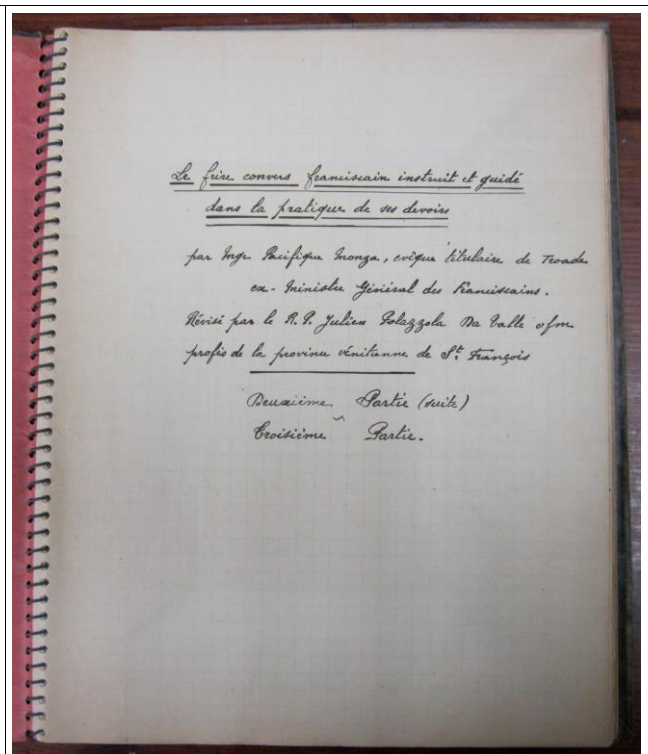 Le frère convers franciscain instruit et guidé
dans la pratique de ses devoirs
par Mgr. Pacifique Monza, evêque titulaire de Troade
ex-Ministre Général des Franciscains.
Révisé par le R. P. Julien Polazzola Da Valle ofm
profès de la province vénitienne de St. François
Deuxième Partie (suite)
Troisième Partie.